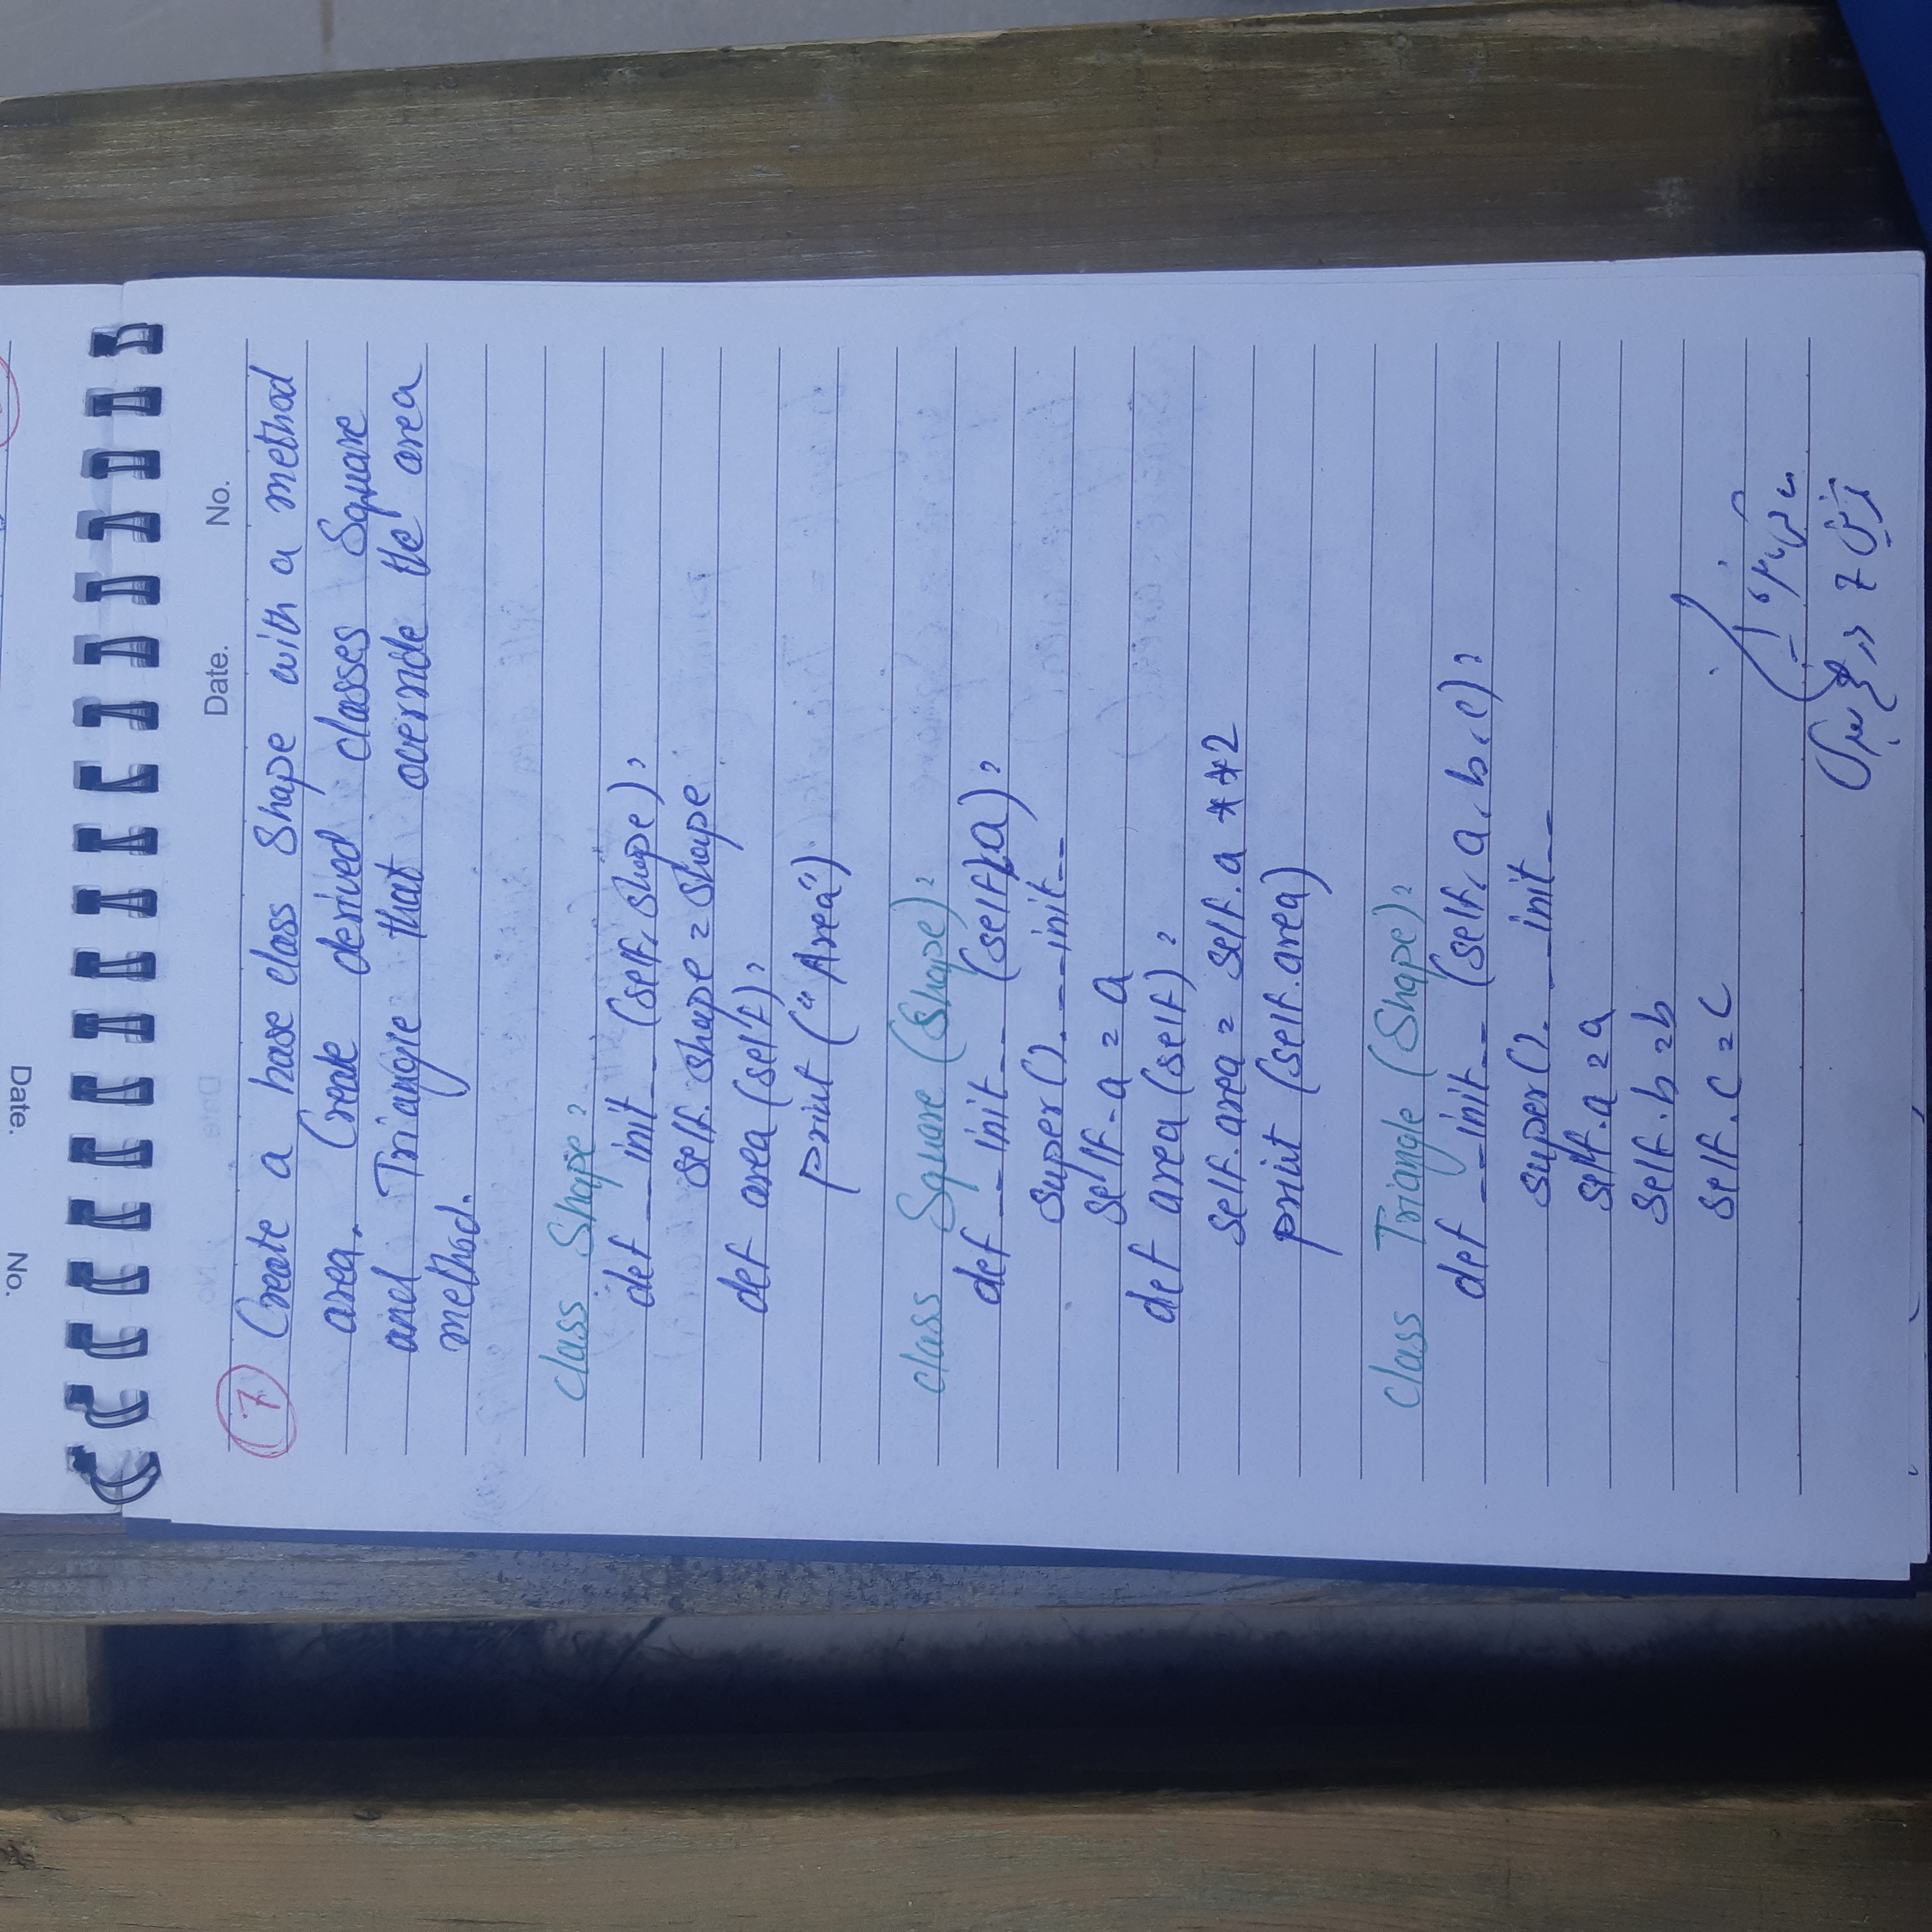 No.
Date.
Date. No.
7 Create a base class Shape with a method
area. Create derived classes Square
and Triangle that override the area
method.
class Shape:
def __init__(self, shape):
self.shape = shape
def area (self):
print ("Area")
class Square (Shape):
def __init__ (self, a):
super().__init__
self.a = a
def area (self):
self.area = self.a **2
print (self.area)
class Triangle (Shape):
def __init__ (self, a, b, c):
super().__init__
self.a = a
self.b = b
self.c = c